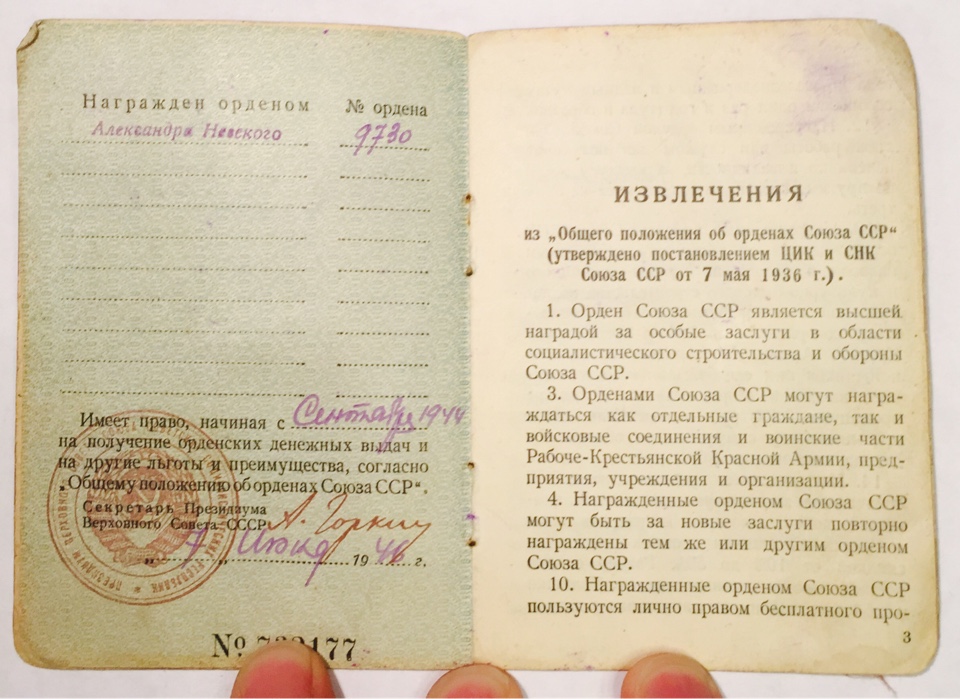 Награжден орденом № ордена
Александра Невского 9730
Имеет право, начиная с Сентября 1944
на получение орденских денежных выдач и
на другие льготы и преимущества, согласно
„Общему положению об орденах Союза ССР“.
Секретарь Президиума
Верховного Совета СССР А. Горкин
„ 7 „ Июня 1946 г.
№ 177
ИЗВЛЕЧЕНИЯ
из „Общего положения об орденах Союза ССР“
(утверждено постановлением ЦИК и СНК
Союза ССР от 7 мая 1936 г.).
1. Орден Союза ССР является высшей
наградой за особые заслуги в области
социалистического строительства и обороны
Союза ССР.
3. Орденами Союза ССР могут награ-
ждаться как отдельные граждане, так и
войсковые соединения и воинские части
Рабоче-Крестьянской Красной Армии, пред-
приятия, учреждения и организации.
4. Награжденные орденом Союза ССР
могут быть за новые заслуги повторно
награждены тем же или другим орденом
Союза ССР.
10. Награжденные орденом Союза ССР
пользуются лично правом бесплатного про-
3